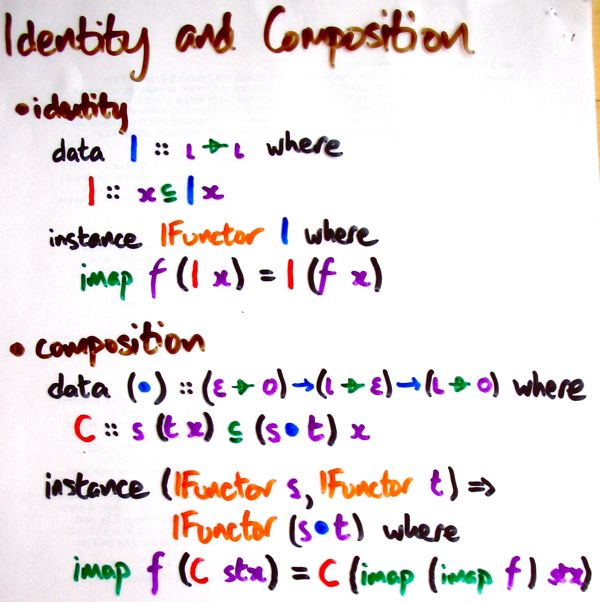 Identity and Composition
• identity
data I :: ι ⇸ ι where
I :: x ⊆ I x
instance IFunctor I where
imap f (I x) = I (f x)
• composition
data (•) :: (ε ⇸ ο) → (ι ⇸ ε) → (ι ⇸ ο) where
C :: s (t x) ⊆ (s • t) x
instance (IFunctor s, IFunctor t) =>
IFunctor (s • t) where
imap f (C stx) = C (imap (imap f) stx)